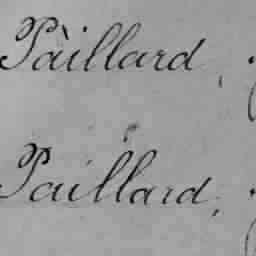 Paillard,
Paillard,